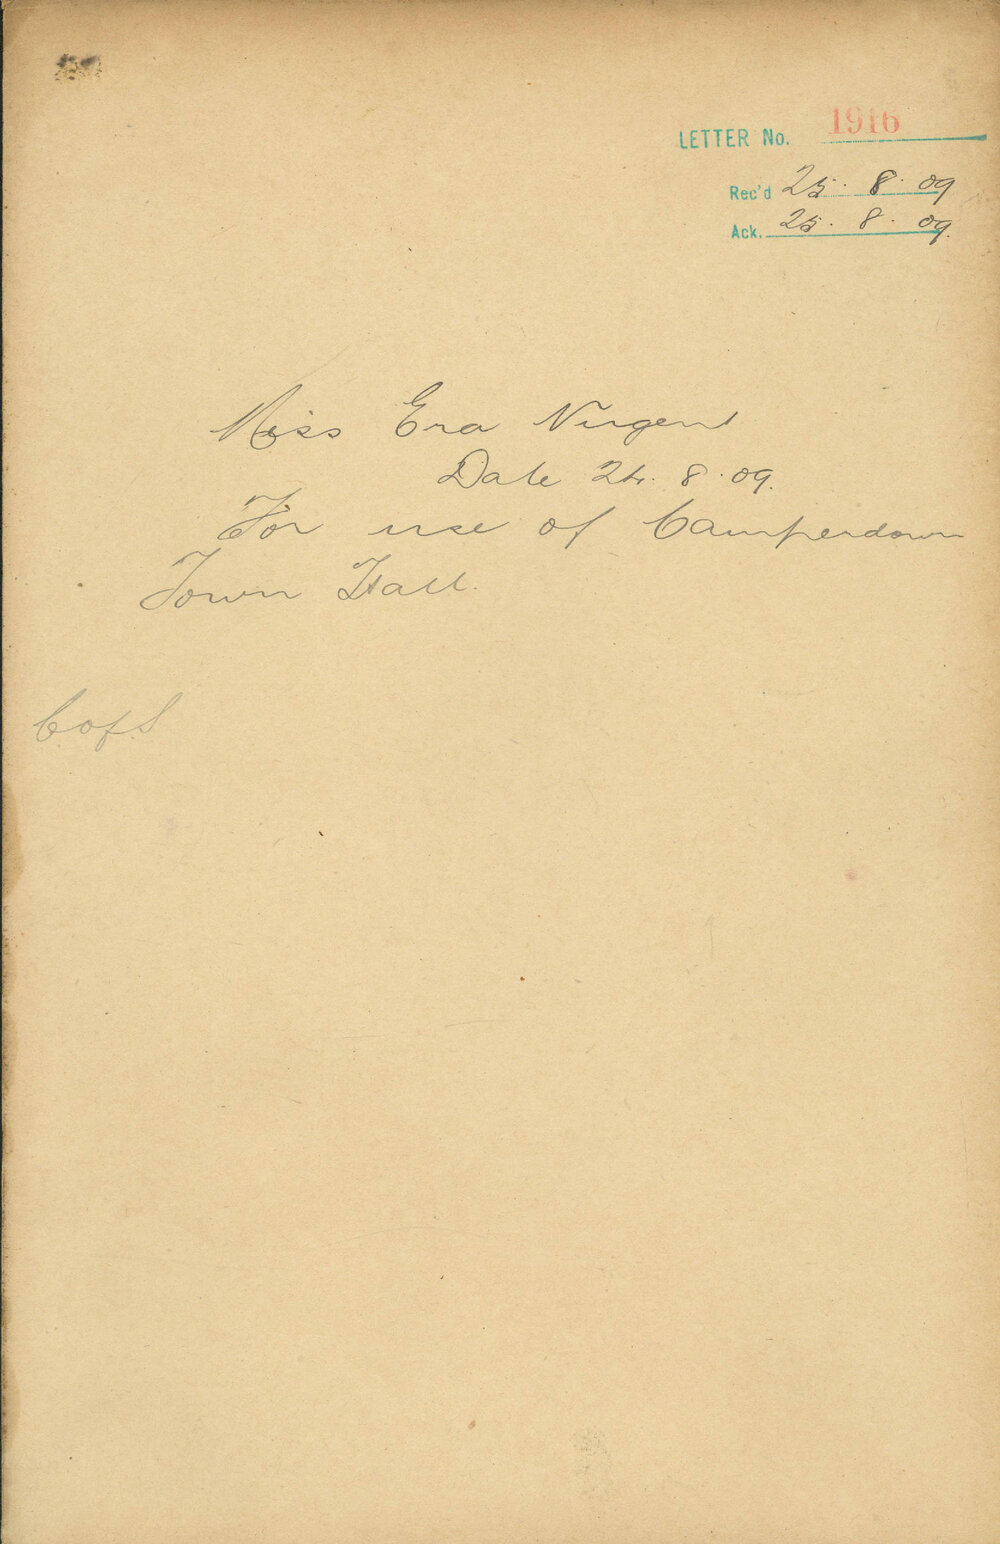 LETTER No. 1916
Rec'd 25. 8. 09
Ack. 25. 8. 09.
Miss Era Nurgent
Date 24. 8. 09.
For use of Camperdown
Town Hall.
C of S